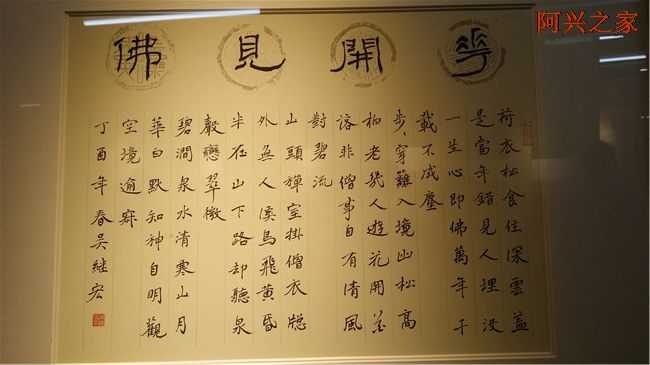 阿兴之家
華開見佛
荷衣松食住深雲盖
是當年錯見人埋没
一生心即佛萬年千
載不成塵
步々穿籬入境幽松高
柏老幾人遊花開花
落非僧事自有清風
對碧流
山頭禪室掛僧衣牕
外無人溪鳥飛黄昏
半在山下路却聽泉
聲戀翠微
碧澗泉水清寒山月
華白默知神自明觀
空境逾寂
丁酉年春吴継宏